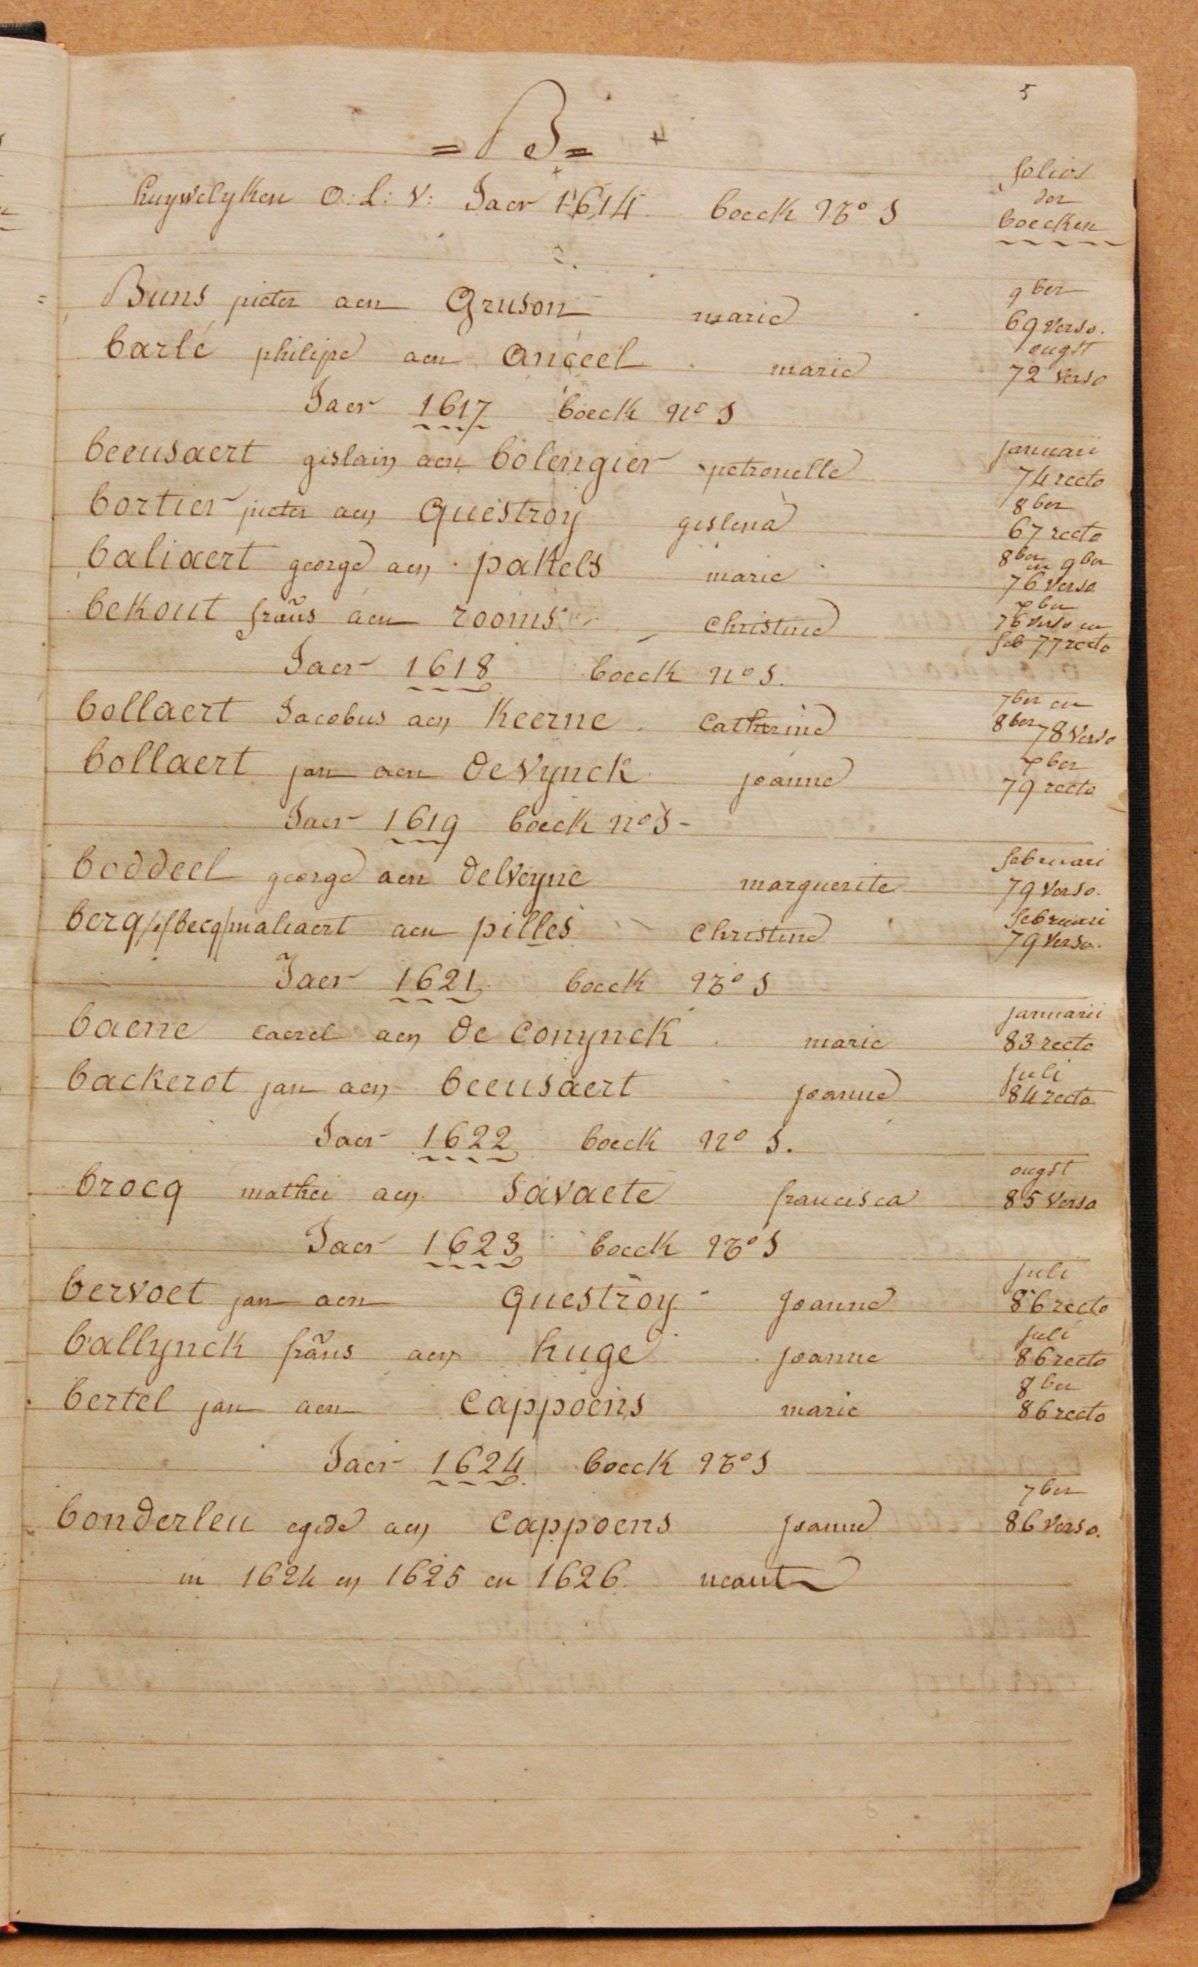 5
= B =
folios
der
boecken
huywelyken O: L: V: Jaer 1614 boeck No 1
9ber
Buns pieter aen Gruson marie 69 verso.
ougst
barlé philipe aen anceel marie 72 verso
Jaer 1617 boeck no 1
januarii
beeusaert gislain aen bolengier petronelle 74 recto
8ber
bortier pieter aen questroy gislena 67 recto
8ber en 9ber
baliaert george aen pakels marie 76 verso
xber
bekout frãns aen rooms christine 76 verso en
feb 77 recto
Jaer 1618 boeck no 1.
7ber en
bollaert Jacobus aen keerne catharine 8ber 78 verso
xber
bollaert jan aen de vynck joanne 79 recto
Jaer 1619 boeck no 1
februari
boddeel george aen delveyne marguerite 79 verso.
februari
berq/of becq/maliaert aen pilles christine 79 verso.
Jaer 1621 boeck No 1
januarii
baene caerel aen de conynck marie 83 recto
juli
backerot jan aen beeusaert joanne 84 recto
Jaer 1622 boeck No 1.
ougst
brocq mathei aen savaete francisca 85 verso
Jaer 1623 boeck No 1
juli
bervoet jan aen questroy joanne 86 recto
juli
ballynck frãns aen huge joanne 86 recto
8ber
bertel jan aen cappoens marie 86 recto
Jaer 1624 boeck No 1
7ber
bonderleu egide aen cappoens joanne 86 verso.
in 1624 en 1625 en 1626 neant